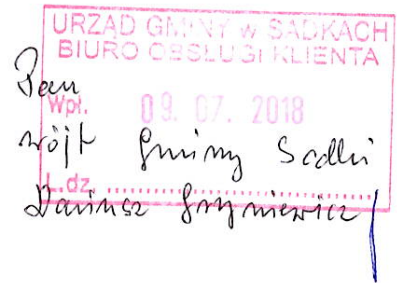 URZĄD GMINY w SADKACH
BIURO OBSŁUGI KLIENTA
Pan
Wpł. 09. 07. 2018
wójt Gminy Sadki
L.dz. ..............................
Dariusz Gryniewicz